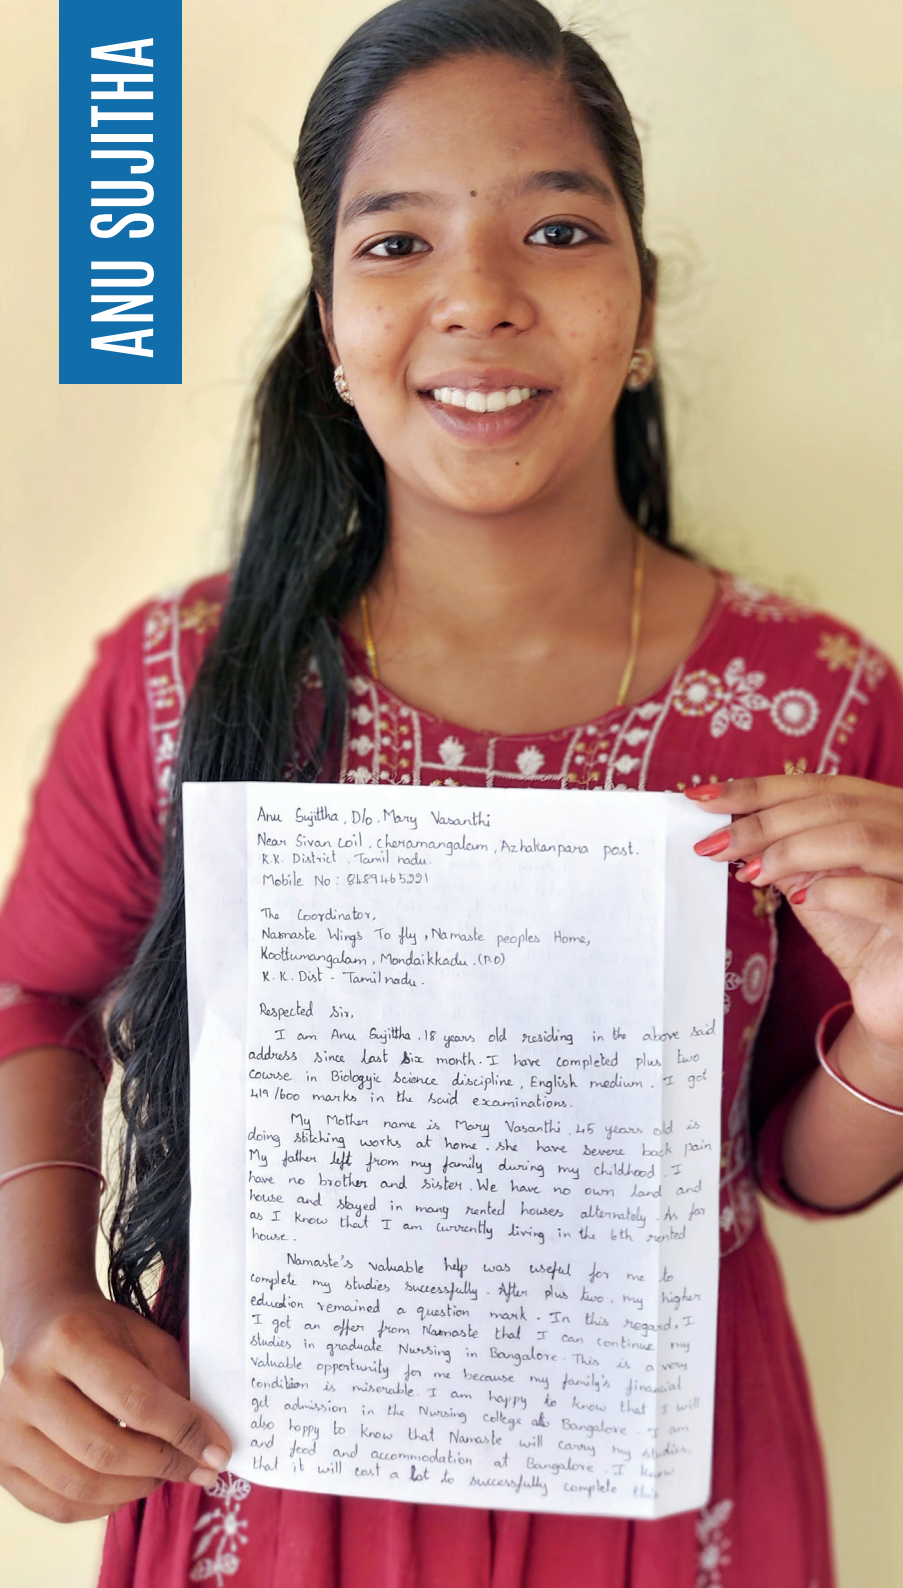 ANU SUJITHA
Anu Sujittha, D/o. Mary Vasanthi
Near Sivan Coil, Cheramangalam, Azhakanpara post.
K.K. District, Tamil nadu.
Mobile No: 8489465991
The Coordinator,
Namaste Wings To fly, Namaste peoples Home,
Koottumangalam, Mondaikkadu.(P.O)
K.K. Dist - Tamil nadu.
Respected Sir,
I am Anu Sujittha. 18 years old residing in the above said
address since last Six month. I have completed plus two
course in Biologyic Science discipline, English medium. I got
419/600 marks in the said examinations.
My Mother name is Mary Vasanthi. 45 years old is
doing stitching works at home. She have severe back pain
My father left from my family during my childhood. I
have no brother and sister. We have no own land and
house and stayed in many rented houses alternately. As far
as I know that I am currently living in the 6th rented
house.
Namaste's valuable help was useful for me to
complete my studies successfully. After plus two, my higher
education remained a question mark. In this regard, I
I got an offer from Namaste that I can continue my
studies in graduate Nursing in Bangalore. This is a very
valuable opportunity for me because my family's financial
condition is miserable. I am happy to know that I will
get admission in the Nursing college at Bangalore. I am
also happy to know that Namaste will carry my studies.
and food and accommodation at Bangalore. I know
that it will cost a lot to successfully complete this